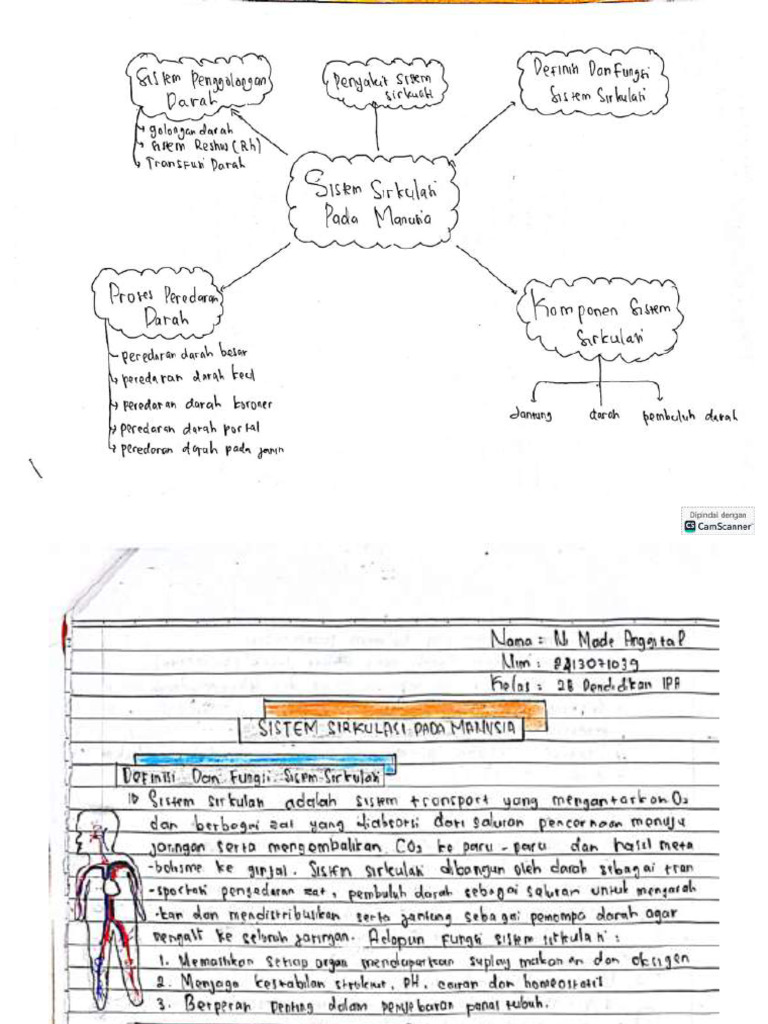 Sistem Penggolongan
Darah
golongan darah
sistem Reshus (Rh)
Transfusi Darah
Penyakit Sistem
sirkulasi
Definisi Dan Fungsi
Sistem Sirkulasi
Sistem Sirkulasi
Pada Manusia
Proses Peredaran
Darah
peredaran darah besar
peredaran darah kecil
peredaran darah koroner
peredaran darah portal
peredaran darah pada janin
Komponen Sistem
Sirkulasi
Jantung darah pembuluh darah
Dipindai dengan
CS CamScanner
Nama : Ni Made Anggita P
Nim : 2413071039
Kelas : 2B Pendidikan IPA
SISTEM SIRKULASI PADA MANUSIA
Definisi Dan Fungsi Sistem Sirkulasi
Sistem sirkulasi adalah sistem transport yang mengantarkan O2
dan berbagai zat yang diabsorsi dari saluran pencernaan menuju
jaringan serta mengembalikan CO2 ke paru-paru dan hasil meta
-bolisme ke ginjal. Sistem sirkulasi dibangun oleh darah sebagai tran
-sportasi pengedaran zat, pembuluh darah sebagai saluran untuk mengarah
-kan dan mendistribusikan serta jantung sebagai pemompa darah agar
mengalir ke seluruh jaringan. Adapun fungsi sistem sirkulasi :
1. Memastikan setiap organ mendapatkan suplay makanan dan oksigen
2. Menjaga kestabilan struktur, PH, cairan dan homeostasis
3. Berperan penting dalam penyebaran panas tubuh.